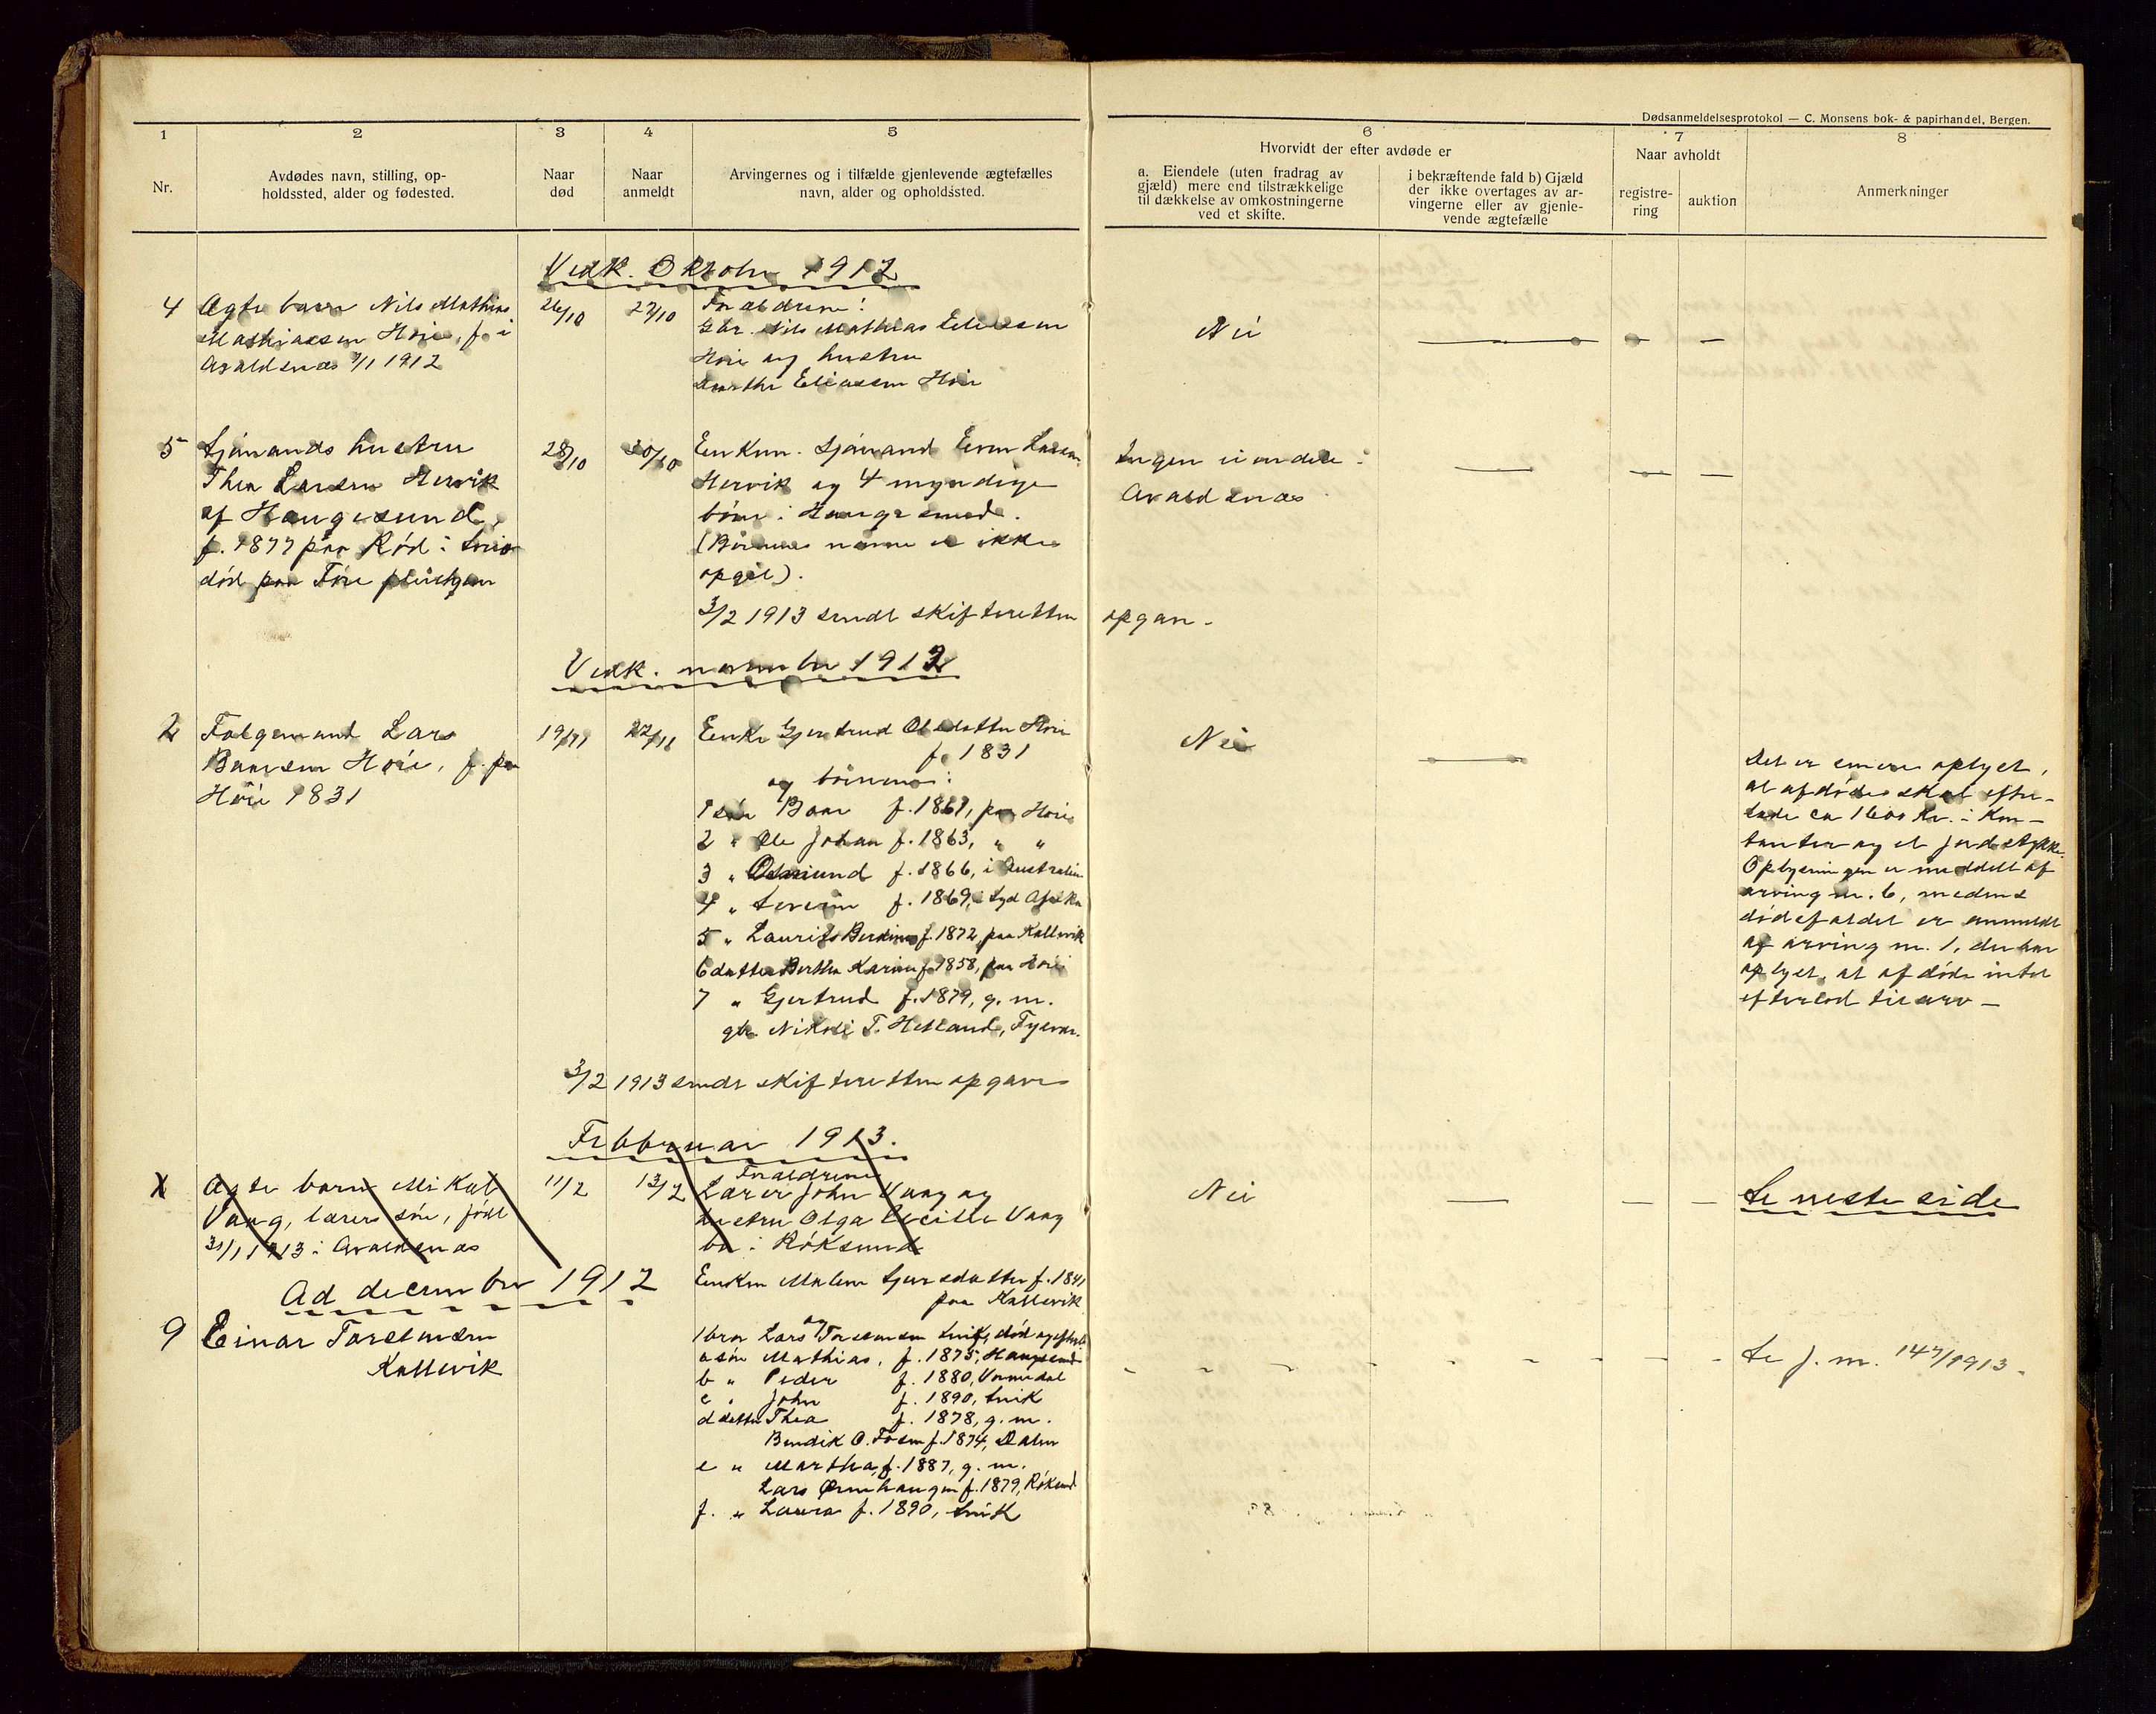 Dødsanmeldelsesprotokol — C. Monsens bok- & papirhandel, Bergen.
1 2 3 4 5 6 7 8
Nr.
Avdødes navn, stilling, op-
holdssted, alder og fødested.
Naar
død
Naar
anmeldt
Arvingernes og i tilfælde gjenlevende ægtefælles
navn, alder og opholdssted.
Hvorvidt der efter avdøde er
a. Eiendele (uten fradrag av
gjæld) mere end tilstrækkelige
til dækkelse av omkostningerne
ved et skifte.
i bekræftende fald b) Gjæld
der ikke overtages av ar-
vingerne eller av gjenle-
vende ægtefælle
Naar avholdt
registre-
ring
auktion
Anmerkninger
Vedk. Oktober 1912
4 Ægte barn Nils Mathias
Mathiassen Høie, f. i
Avaldsnæs 7/1 1912
26/10 27/10
Forældrene:
Gbr. Nils Mathias Eliassen
Høie og hustru
Marthe Eliassen Høie
Nei — — —
5 Sjømands hustru
Thea Larsen Hervik
af Haugesund,
f. 1877 paa Rød i
død paa Føre pleiehjem
28/10 30/10
Enkem. Sjømand Even Larsen
Hervik og 4 myndige
børn i Haugesund.
(Børnenes navne er ikke
opgit).
Ingen eiendele i
Avaldsnæs
— — —
3/2 1913 sendt skifteretten opgave.
Vedk. november 1912
2 Folgemand Lars
Baarsen Høie, f. paa
Høie 1831
19/11 22/11
Enke Gjertrud Olsdatter Høie
f. 1831
og børnene:
1 søn Baar f. 1861, paa Høie
2 " Ole Johan f. 1863, " "
3 " Osmund f. 1866, i Australien
4 " Severin f. 1869, i Syd Afrika
5 " Laurits Berdines f. 1872, paa Kallevik
6 datter Bertha Karine f. 1858, paa Høie
7 " Gjertrud f. 1879, g. m.
gbr. Nikolai T. Hetland, Tysvær.
Nei —
Det er senere oplyst,
at afdøde skal efter-
lade ca 1600 Kr. i Kon-
tanter og et jordstykke.
Oplysningen er meddelt af
arving nr. 6, medens
dødsfaldet er anmeldt
af arving nr. 1, der har
oplyst, at afdøde intet
efterlod til arv —
3/2 1913 sendt skifteretten opgave
Februar 1913.
Ægte barn Mikal
Vaag, lærers søn, født
31/1 1913 i Avaldsnæs
11/2 13/2
Forældrene
Lærer John Vaag og
hustru Olga Cecilie Vaag
bo i Røksund
Nei — — —
Se neste side
Ad december 1912
9 Einar Torstensen
Kallevik
Enken Malene Sjursdatter f. 1841
paa Kallevik
og
1 bror Lars Torstensen Snik, død og efterl.
a søn Mathias, f. 1875, Haugesund
b " Peder f. 1880, Vormedal
c " John f. 1890, Snik
d datter Thea f. 1878, g. m.
Bendik O. Fosen f. 1874, Dalen
e " Martha, f. 1887, g. m.
Lars Ørnehaugen f. 1879, Røksund
f. " Laura f. 1890, Snik
Se j. nr. 147/1913.